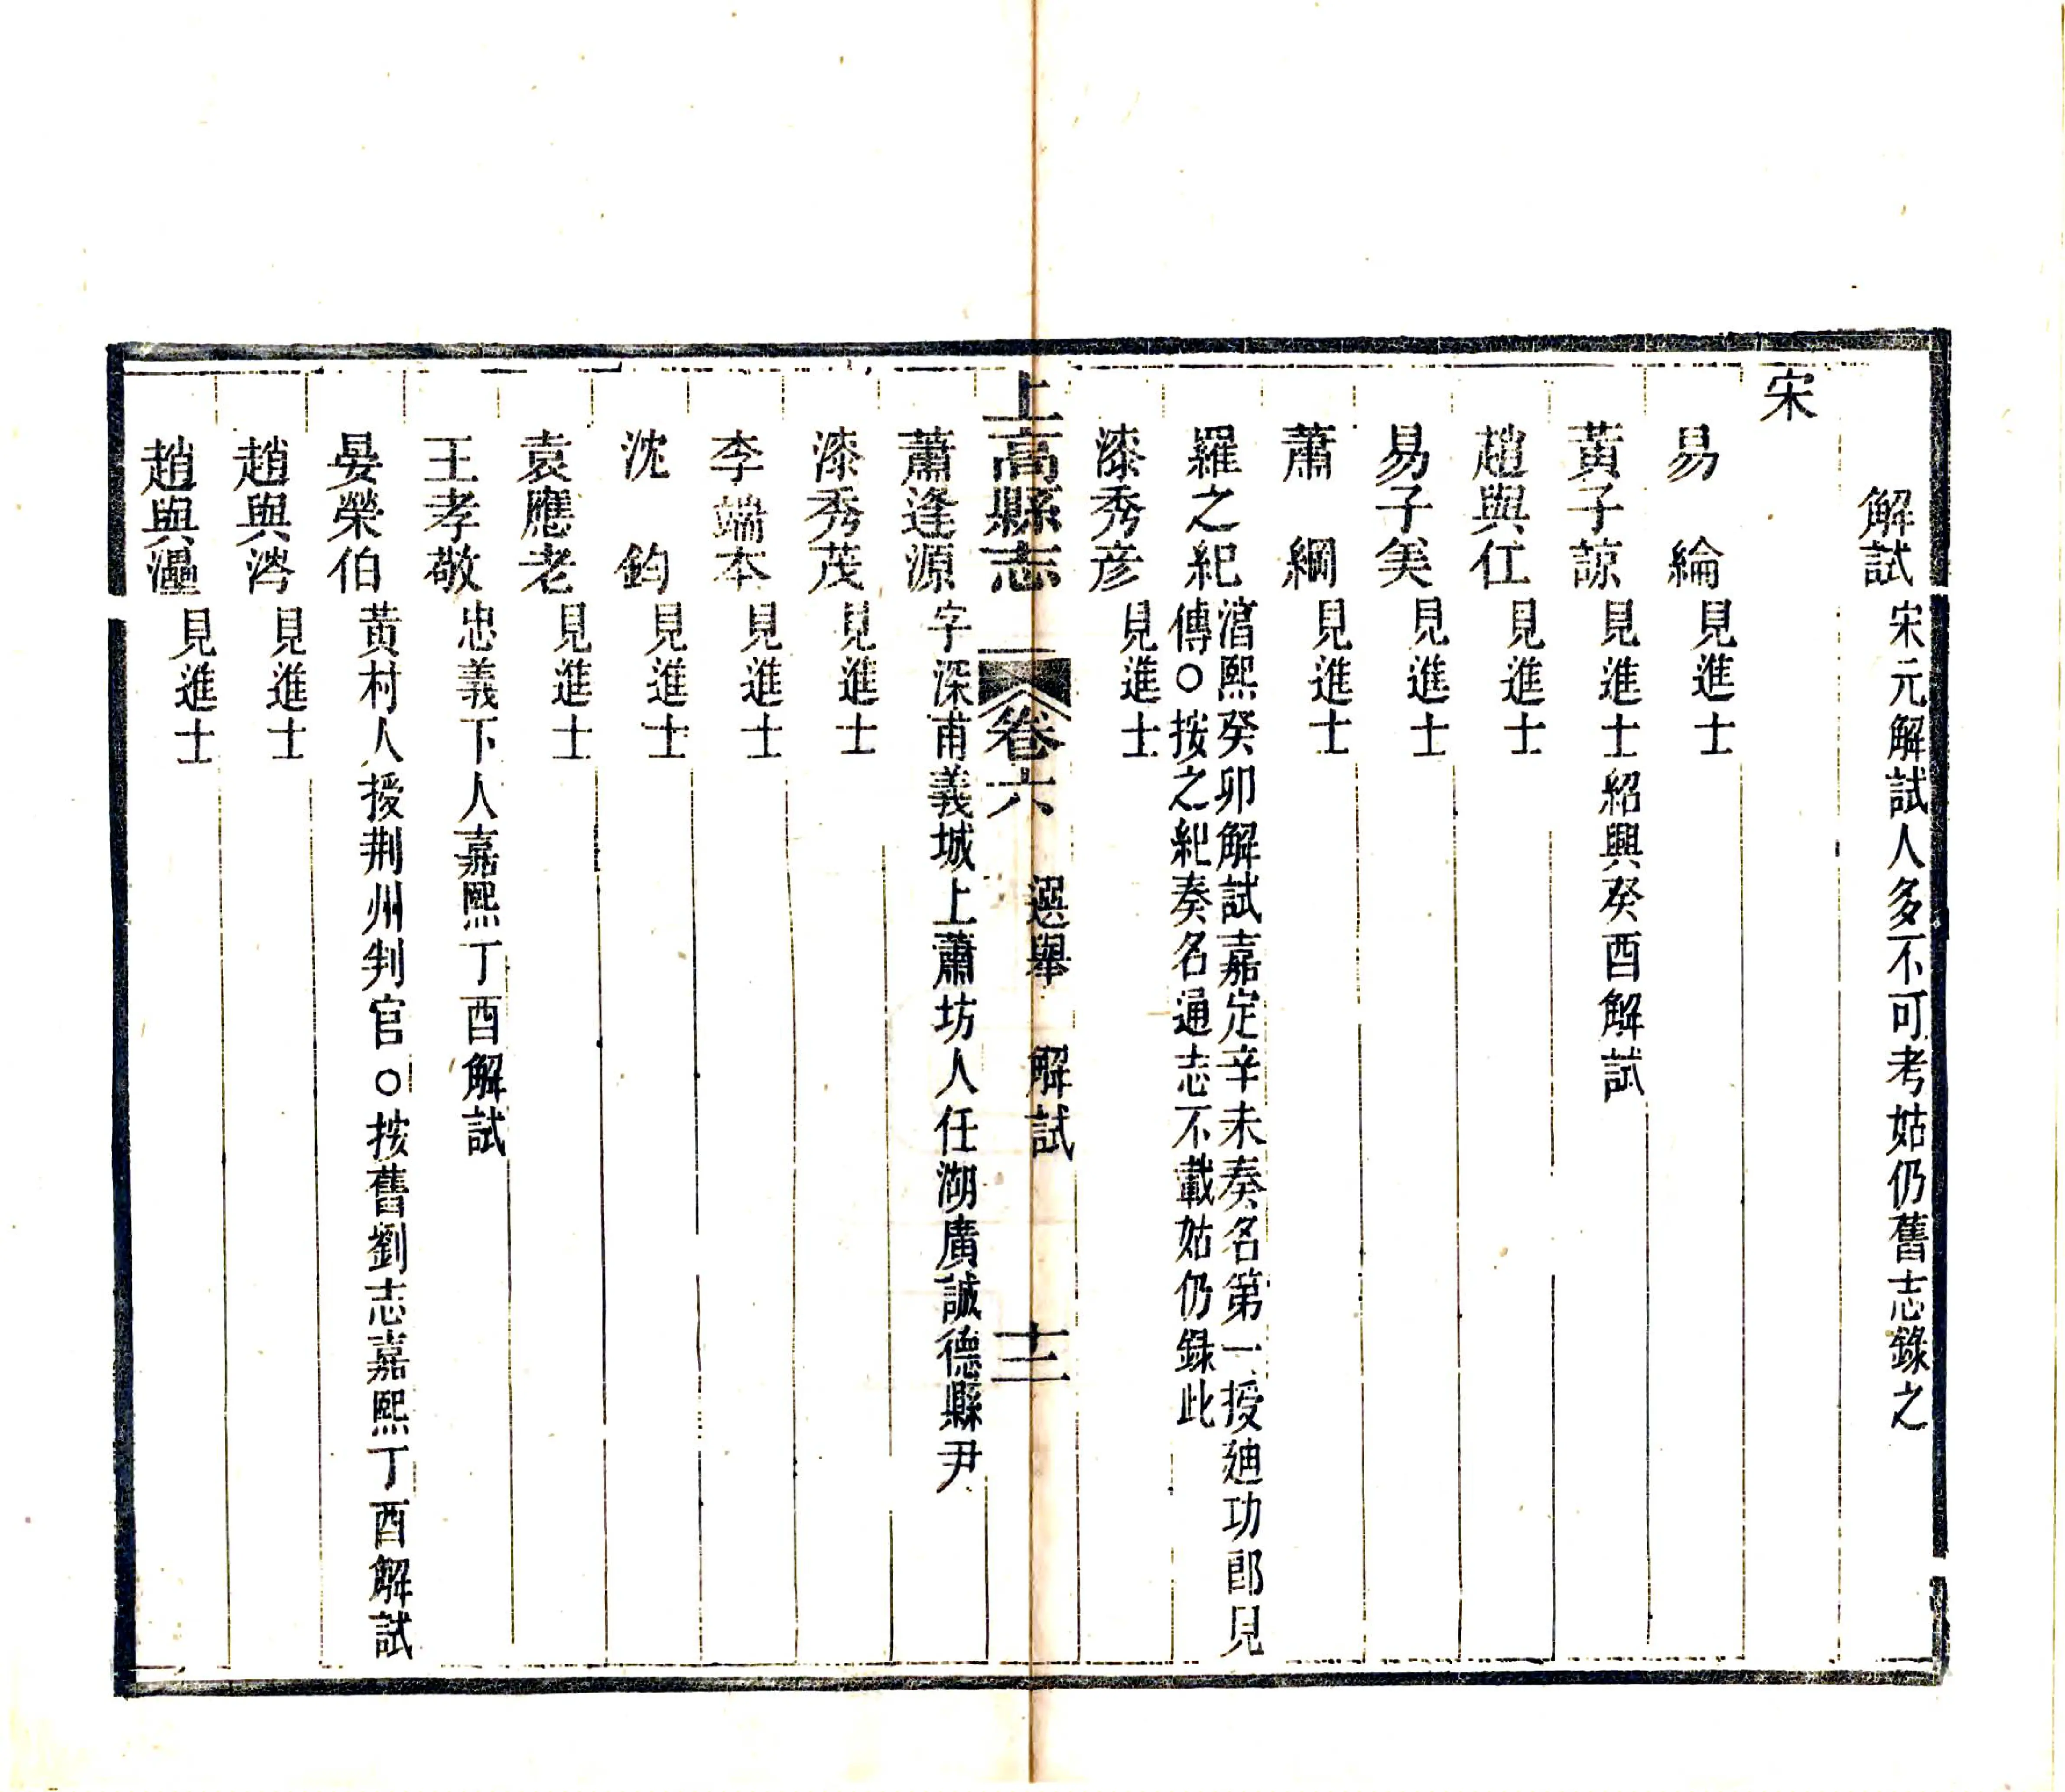 解試宋元解試人多不可考姑仍舊志錄之
宋
易綸見進士
黃子諒見進士紹興癸酉解試
趙與仜見進士
易子美見進士
蕭綱見進士
羅之紀淳熙癸卯解試嘉定辛未奏名第一授廸功郎見
傳○按之紀奏名通志不載姑仍錄此
漆秀彦見進士
上高縣志 卷六 選舉 解試 十二
蕭逢源字深甫義城上蕭坊人任湖廣誠德縣尹
漆秀茂見進士
李端本見進士
沈鈞見進士
袁應老見進士
王孝敬忠義下人嘉熙丁酉解試
晏榮伯黃村人授荆州判官○按舊劉志嘉熙丁酉解試
趙與涔見進士
趙與見進士